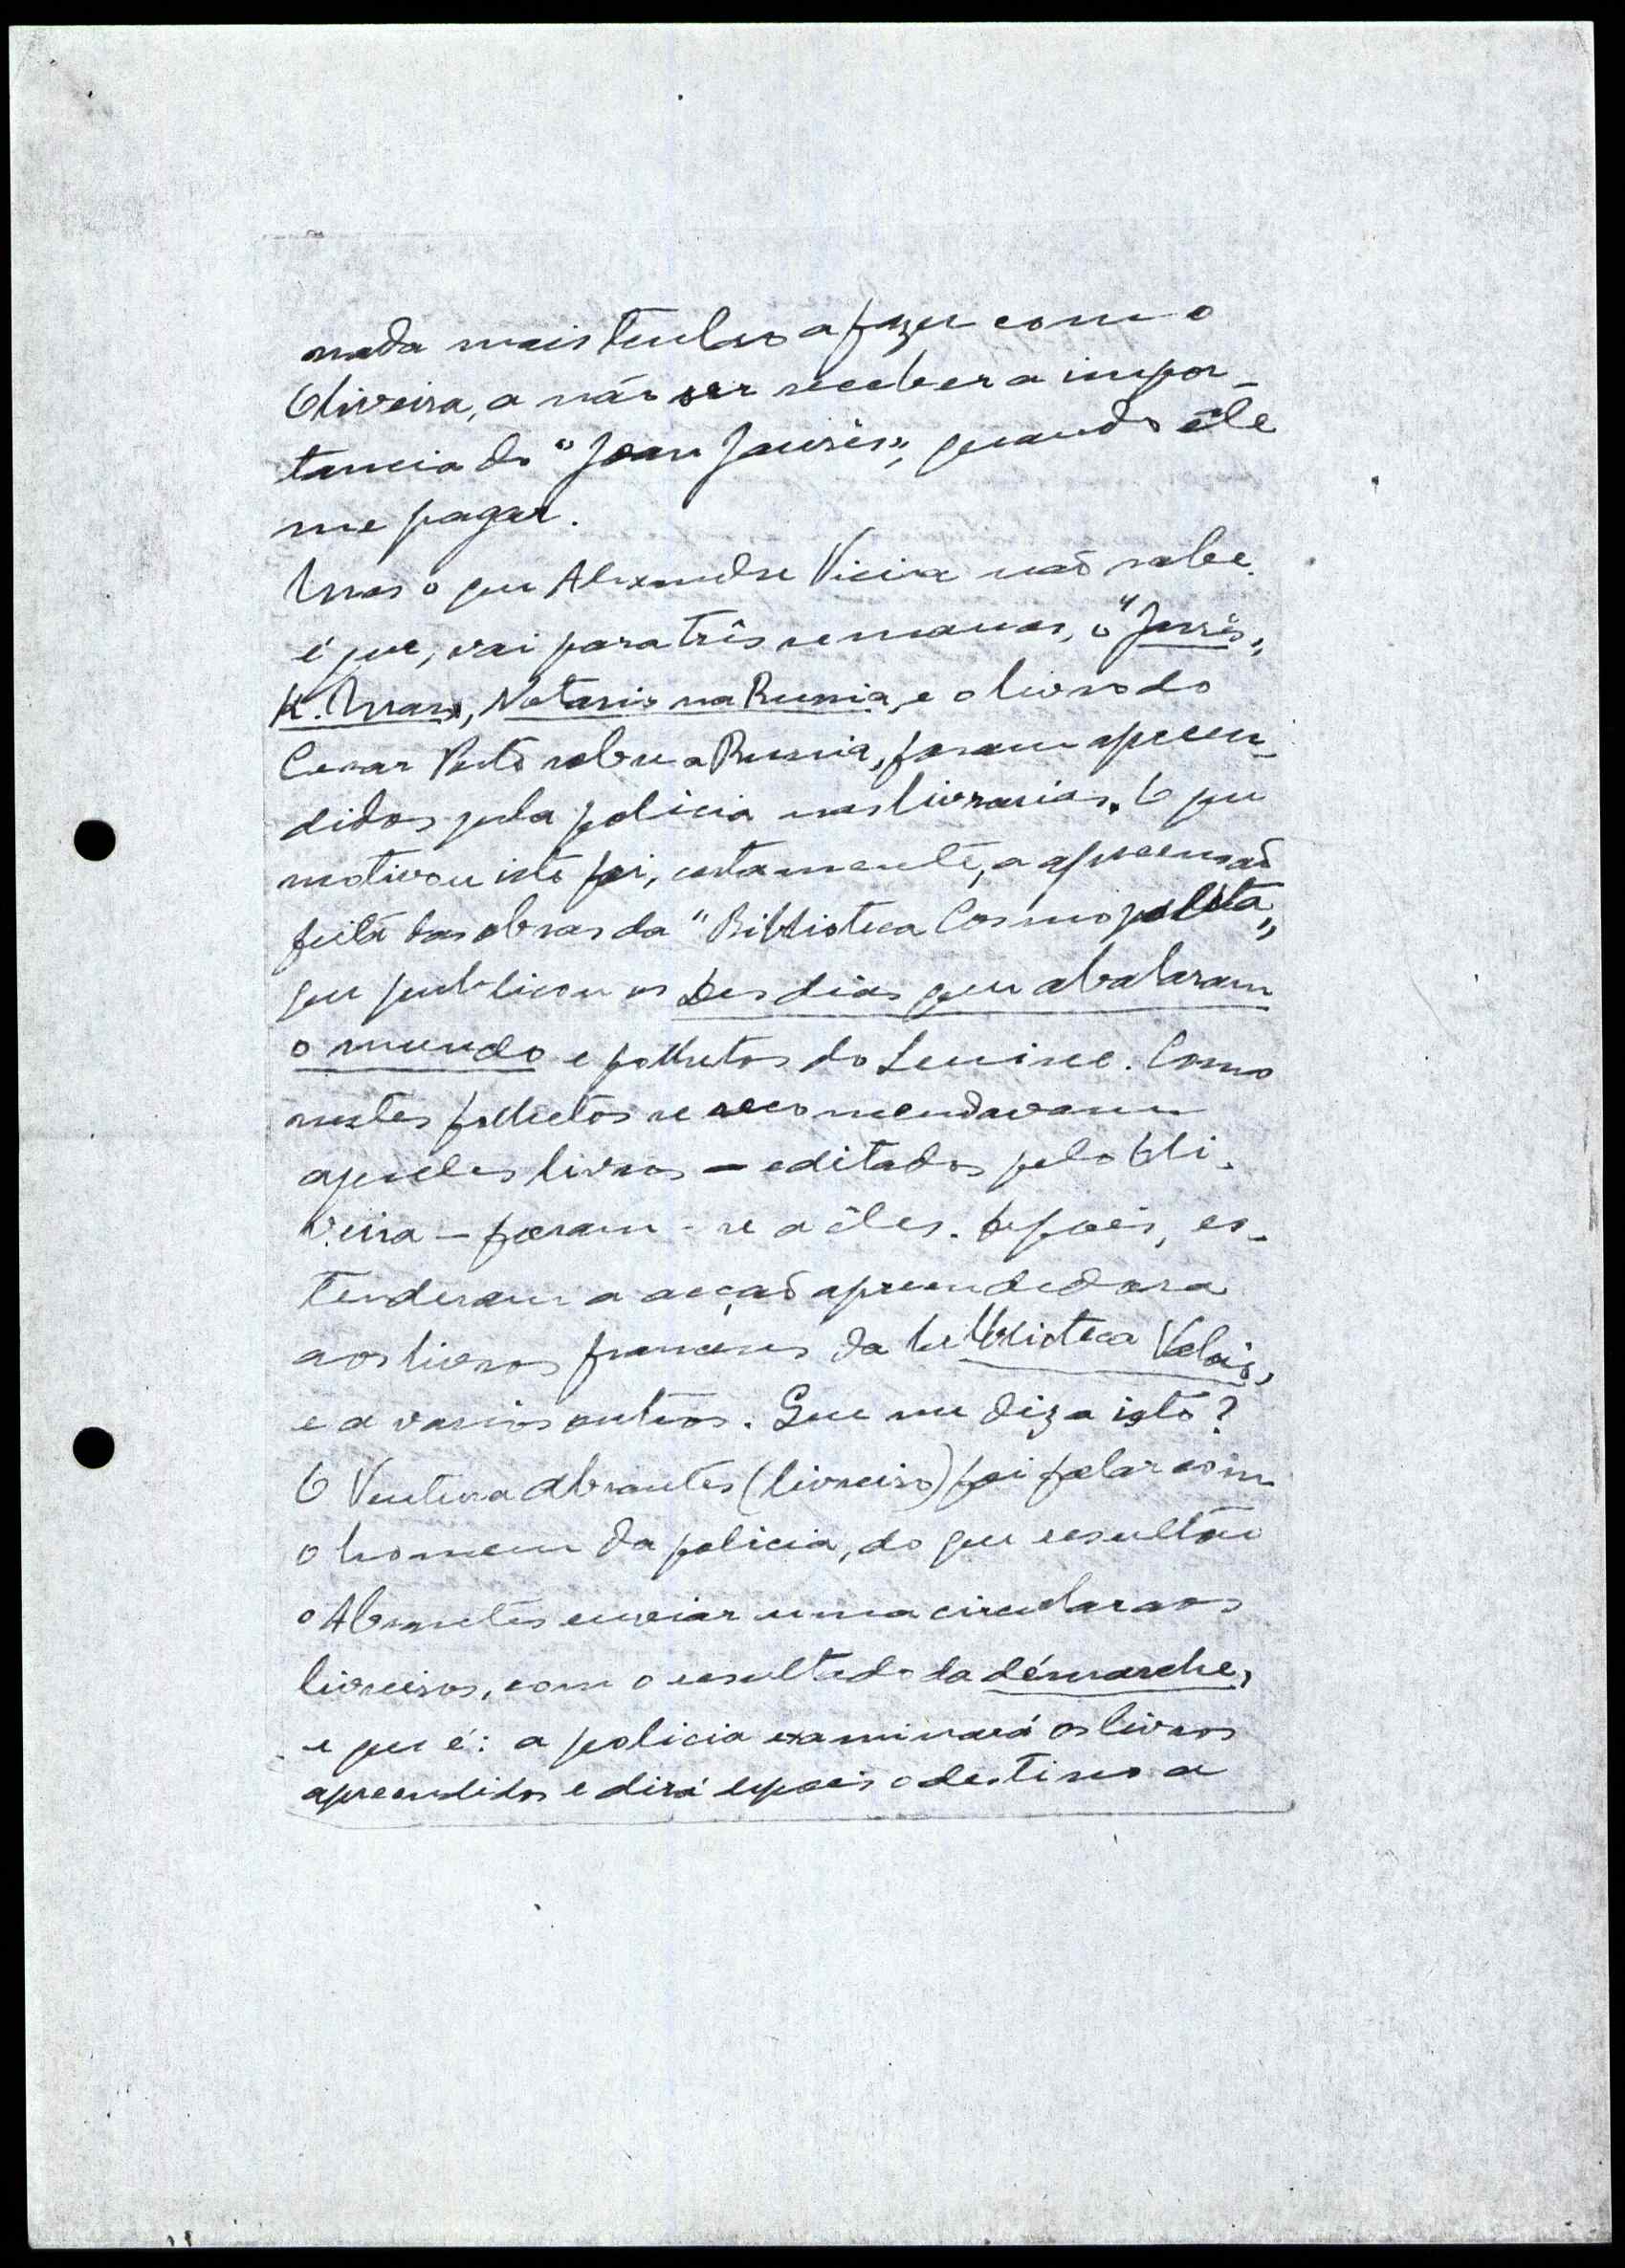 nada mais tenho a fazer com o
Oliveira, a não ser receber a impor-
tancia do "Jean Jaurès", quando êle
me pagar.
Mas o que Alexandre Vieira não sabe
é que, vai para três semanas, o "Jaurès",
K. Marx, Notario na Russia, e o livro do
Cesar Porto sobre a Russia, foram apreen-
didos pela policia nas livrarias. O que
motivou isto foi, certamente, a apreensão
feita das obras da "Biblioteca Cosmopolita",
que publicou os Des dias que abalaram
o mundo e folhetos do Lenine. Como
nestes folhetos se recomendavam
aqueles livros - editados pelo Oli-
veira - foram-se a êles. Depois, es-
tenderam a acção apreendedora
aos livros franceses da biblioteca Valois,
e a varios outros. Que me diz a isto?
O Ventura Abrantes (livreiro) foi falar com
o homem da policia, do que resultou
o Abrantes enviar uma circular aos
livreiros, com o resultado da démarche,
e que é: a policia examinará os livros
apreendidos e dirá depois o destino a